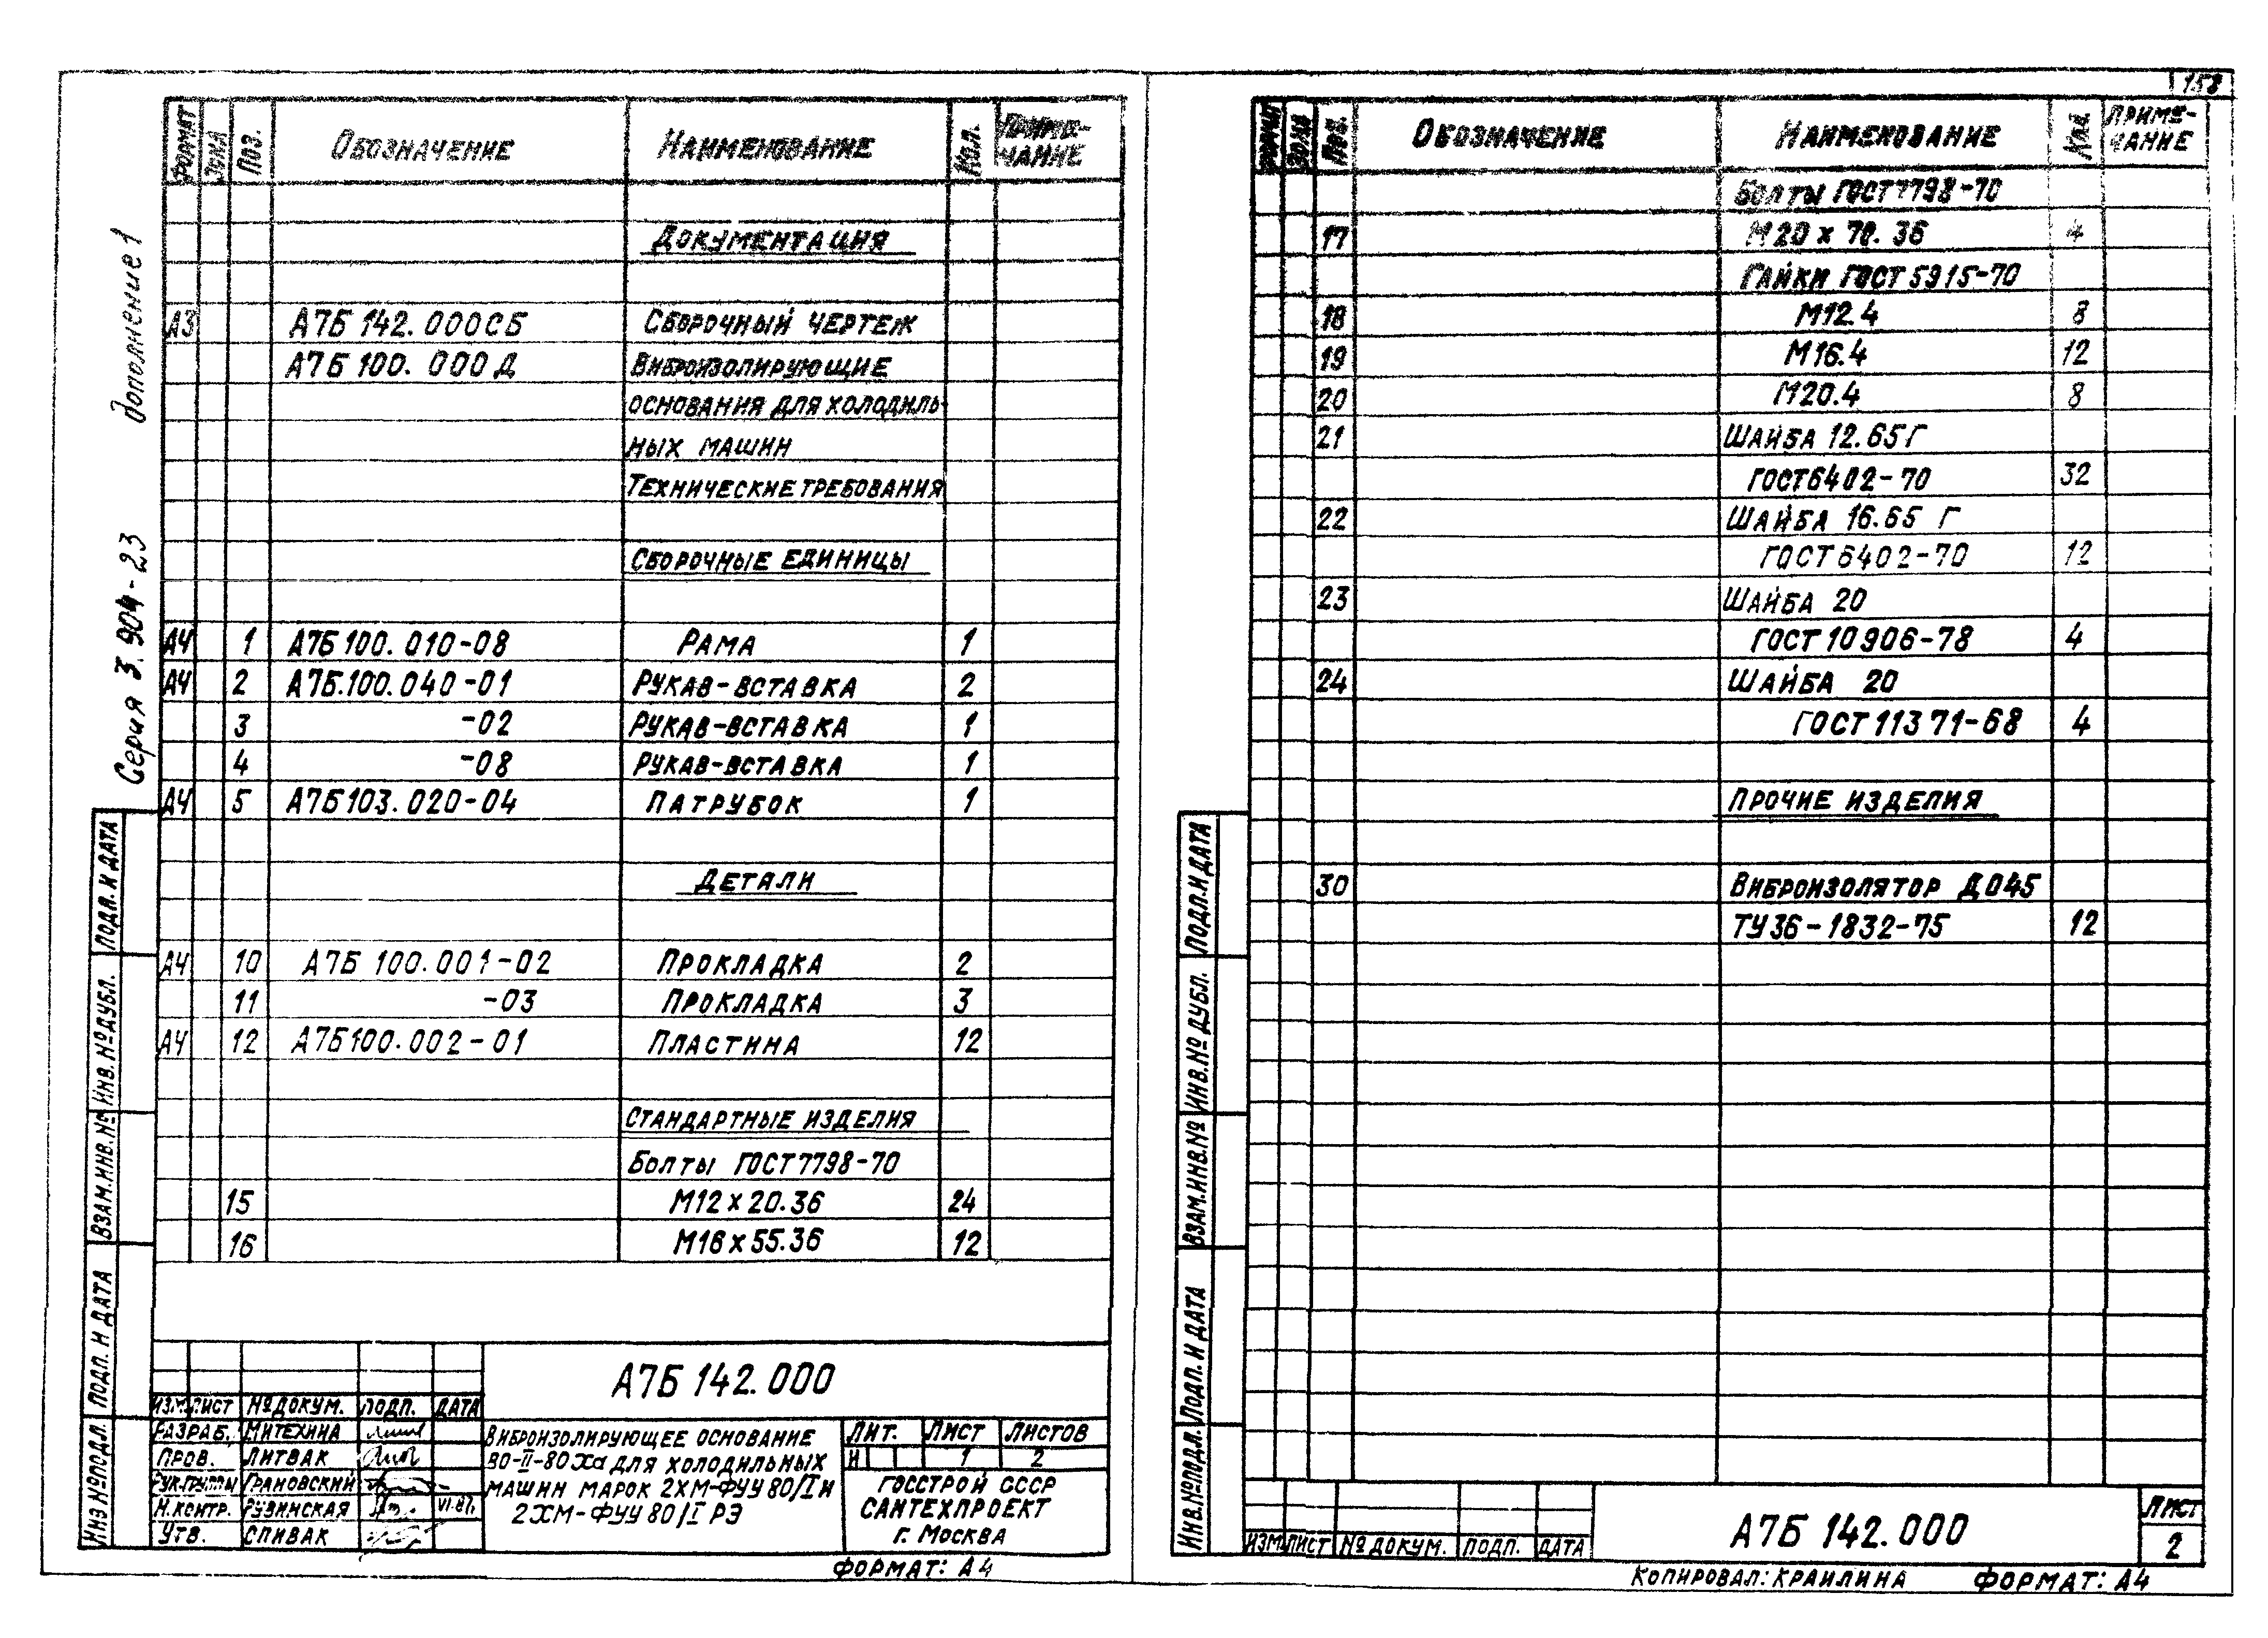 Серия 3.904-23 дополнение 1
ФОРМАТ ЗОНА ПОЗ. ОБОЗНАЧЕНИЕ НАИМЕНОВАНИЕ КОЛ. ПРИМЕ-
ЧАНИЕ
ДОКУМЕНТАЦИЯ
А3 А7Б 142.000СБ СБОРОЧНЫЙ ЧЕРТЕЖ
А7Б 100.000Д ВИБРОИЗОЛИРУЮЩИЕ
ОСНОВАНИЯ ДЛЯ ХОЛОДИЛЬ-
НЫХ МАШИН
ТЕХНИЧЕСКИЕ ТРЕБОВАНИЯ
СБОРОЧНЫЕ ЕДИНИЦЫ
А4 1 А7Б 100.010-08 РАМА 1
А4 2 А7Б.100.040-01 РУКАВ-ВСТАВКА 2
3 -02 РУКАВ-ВСТАВКА 1
4 -08 РУКАВ-ВСТАВКА 1
А4 5 А7Б103.020-04 ПАТРУБОК 1
ДЕТАЛИ
А4 10 А7Б 100.001-02 ПРОКЛАДКА 2
11 -03 ПРОКЛАДКА 3
А4 12 А7Б100.002-01 ПЛАСТИНА 12
СТАНДАРТНЫЕ ИЗДЕЛИЯ
БОЛТЫ ГОСТ 7798-70
15 М12 х 20.36 24
16 М16 х 55.36 12
ПОДП. И ДАТА
ИНВ.№ ДУБЛ.
ВЗАМ.ИНВ.№
ПОДП. И ДАТА
ИНВ.№ ПОДЛ.
А7Б 142.000
ИЗМ. ЛИСТ № ДОКУМ. ПОДП. ДАТА
РАЗРАБ. МИТЕХИНА
ПРОВ. ЛИТВАК
РУК.ГРУППЫ ГРАНОВСКИЙ
Н.КОНТР. РУЗИНСКАЯ
УТВ. СПИВАК
ВИБРОИЗОЛИРУЮЩЕЕ ОСНОВАНИЕ
ВО-II-80Ха ДЛЯ ХОЛОДИЛЬНЫХ
МАШИН МАРОК 2ХМ-ФУУ 80/I И
2ХМ-ФУУ 80/I РЭ
ЛИТ. ЛИСТ ЛИСТОВ
И 1 2
ГОССТРОЙ СССР
САНТЕХПРОЕКТ
г. МОСКВА
ФОРМАТ: А4
158
ФОРМАТ ЗОНА ПОЗ. ОБОЗНАЧЕНИЕ НАИМЕНОВАНИЕ КОЛ. ПРИМЕ-
ЧАНИЕ
БОЛТЫ ГОСТ 7798-70
17 М20 х 70.36 4
ГАЙКИ ГОСТ 5915-70
18 М12.4 8
19 М16.4 12
20 М20.4 8
21 ШАЙБА 12.65Г
ГОСТ 6402-70 32
22 ШАЙБА 16.65 Г
ГОСТ 6402-70 12
23 ШАЙБА 20
ГОСТ 10906-78 4
24 ШАЙБА 20
ГОСТ 11371-68 4
ПРОЧИЕ ИЗДЕЛИЯ
30 ВИБРОИЗОЛЯТОР ДО45
ТУ 36-1832-75 12
ПОДП. И ДАТА
ИНВ.№ ДУБЛ.
ВЗАМ.ИНВ.№
ПОДП. И ДАТА
ИНВ.№ ПОДЛ.
ИЗМ. ЛИСТ № ДОКУМ. ПОДП. ДАТА
А7Б 142.000
ЛИСТ
2
КОПИРОВАЛ: КРАИЛИНА ФОРМАТ: А4